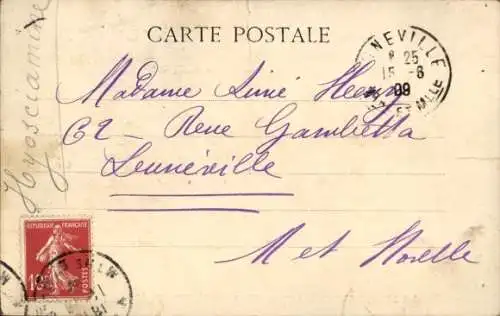 Hyosciamine
CARTE POSTALE
NEVILLE
8 25
15 -6
09
Madame Aimé Henry
62 - Rue Gambetta
Lunéville
Met Moselle
REPUBLIQUE FRANÇAISE
10
POSTES